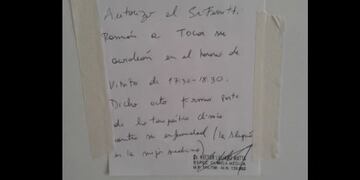 Autorizo al Sr Fauth
Román a Tocar su
acordeón en el horario
de Visita de 17:30-18:30.
Dicho acto forma parte
de la terapéutica diaria
contra su enfermedad (la
es la mejor medicina)
DR. HECTOR
ESPEC. EN MEDICA